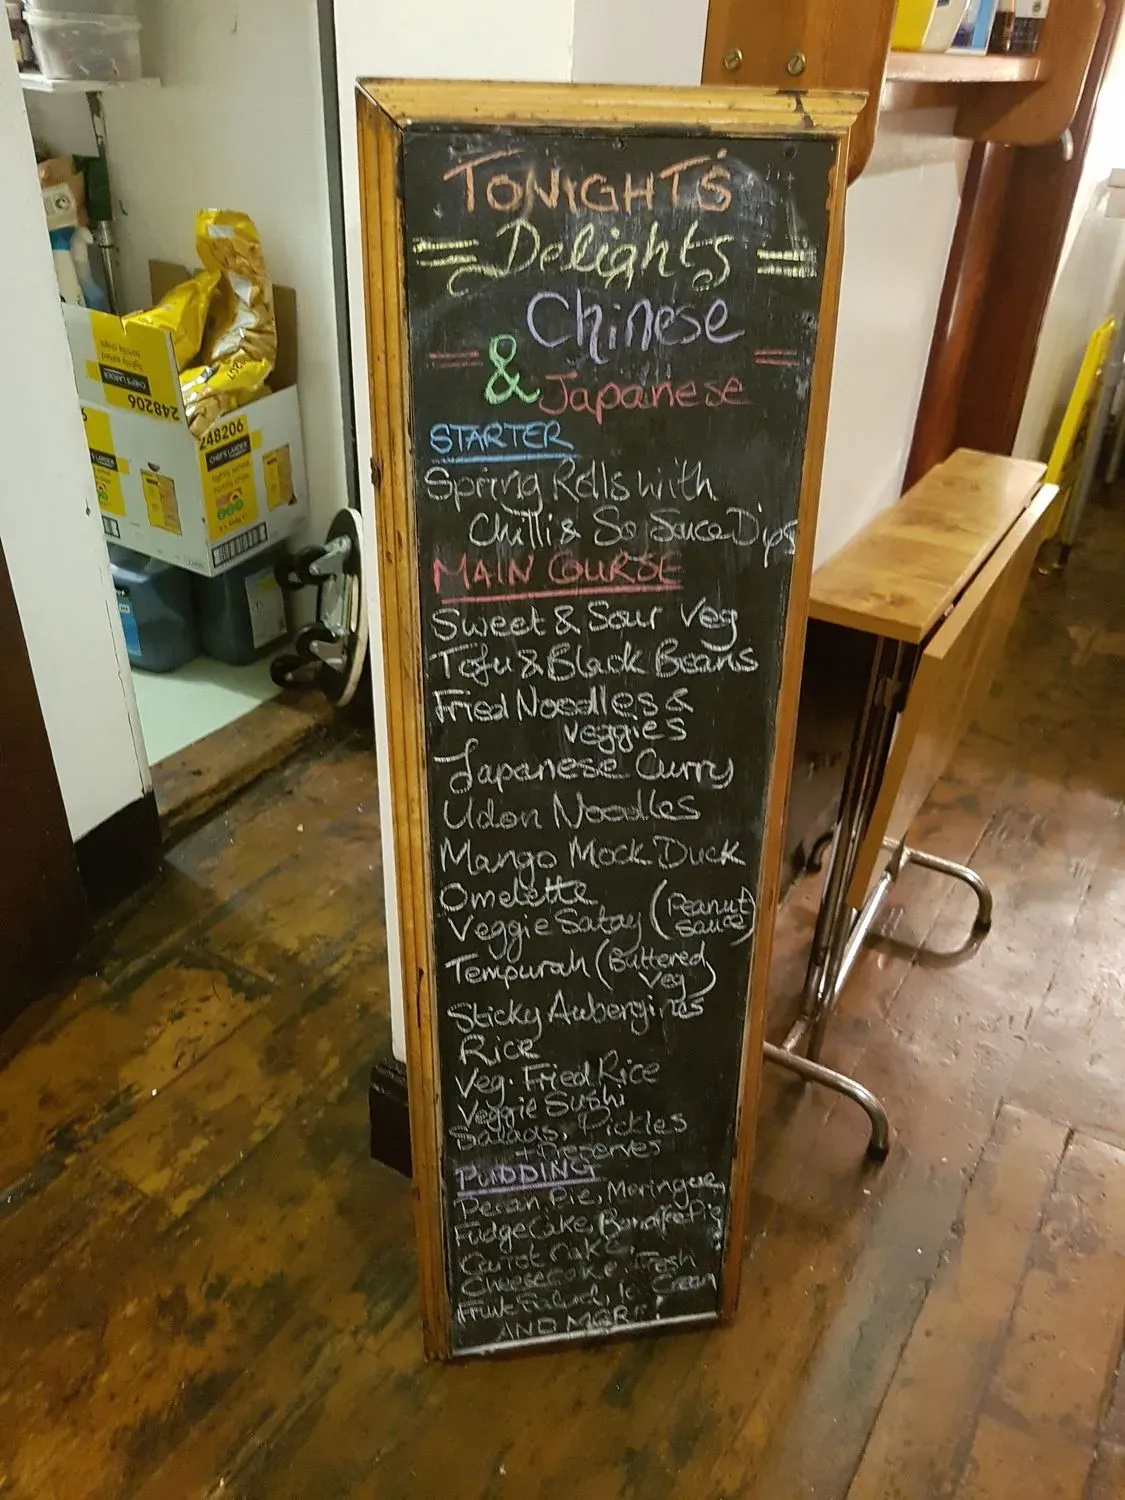 TONIGHT'S
Delights
Chinese
& Japanese
STARTER
Spring Rolls with
Chilli & So Sauce Dips
MAIN COURSE
Sweet & Sour Veg
Tofu & Black Beans
Fried Noodles &
veggies
Japanese Curry
Udon Noodles
Mango Mock Duck
Omelette
Veggie Satay (Peanut
Sauce)
Tempurah (Battered
Veg)
Sticky Aubergines
Rice
Veg. Fried Rice
Veggie Sushi
Salads, Pickles
+
PUDDING
Pecan Pie, Meringue,
Fudge Cake, Banoffee Pie
Carrot Cake,
Cheesecake, Fresh
Fruit Salad, Ice Cream
AND MORE!
248206
248206
CHEF'S LARDER
lightly salted
tortilla chips
CHEF'S LARDER
lightly salted
tortilla chips